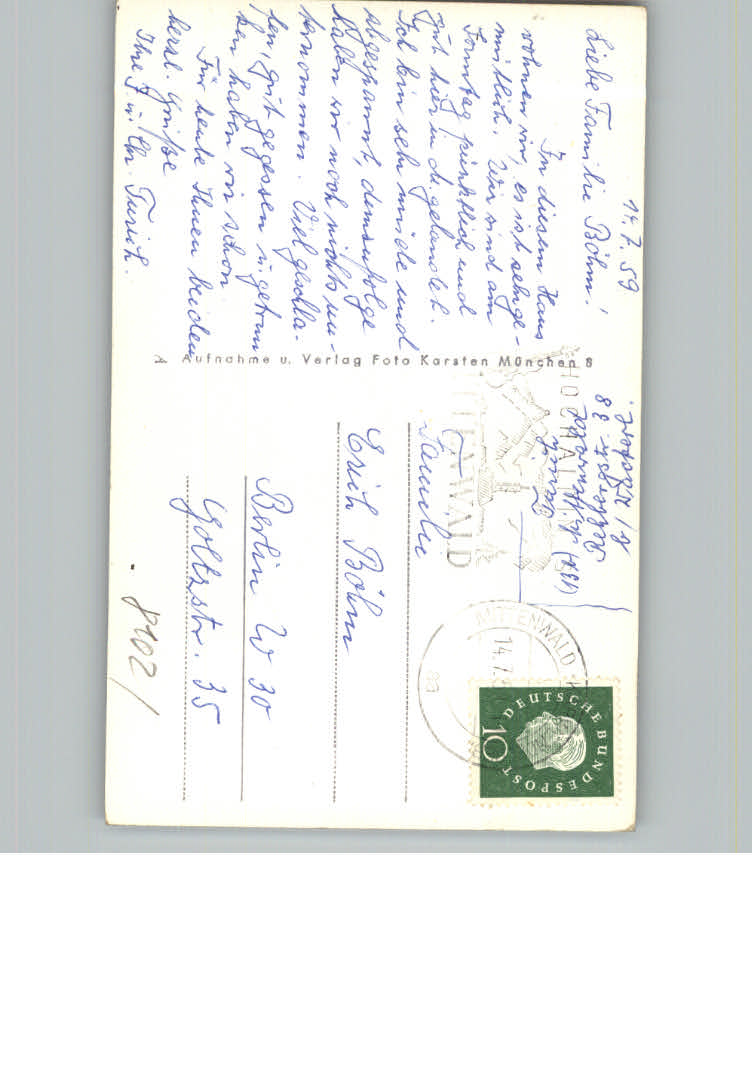 14.7.59
Liebe Familie Böhm!
In diesem Haus
wohnen wir, es ist sehr ge-
mütlich. Wir sind am
Sonntag pünktlich und
gut hier u. d. gelandet.
Ich bin sehr müde und
abgespannt, demzufolge
haben wir noch nichts un-
ternommen. Viel geschla-
fen, gut gegessen u. getrun
ken haben wir schon
Für heute Ihnen beiden
herzl. Grüße
Ihre F. u. Ch.
A Aufnahme u. Verlag Foto Karsten München 8
HOCHALPIN
MITTENWALD
MITTENWALD
14.7.5
DEUTSCHE BUNDESPOST
10
Familie
Erich Böhm
Berlin W 30
Goltzstr. 35
8102/